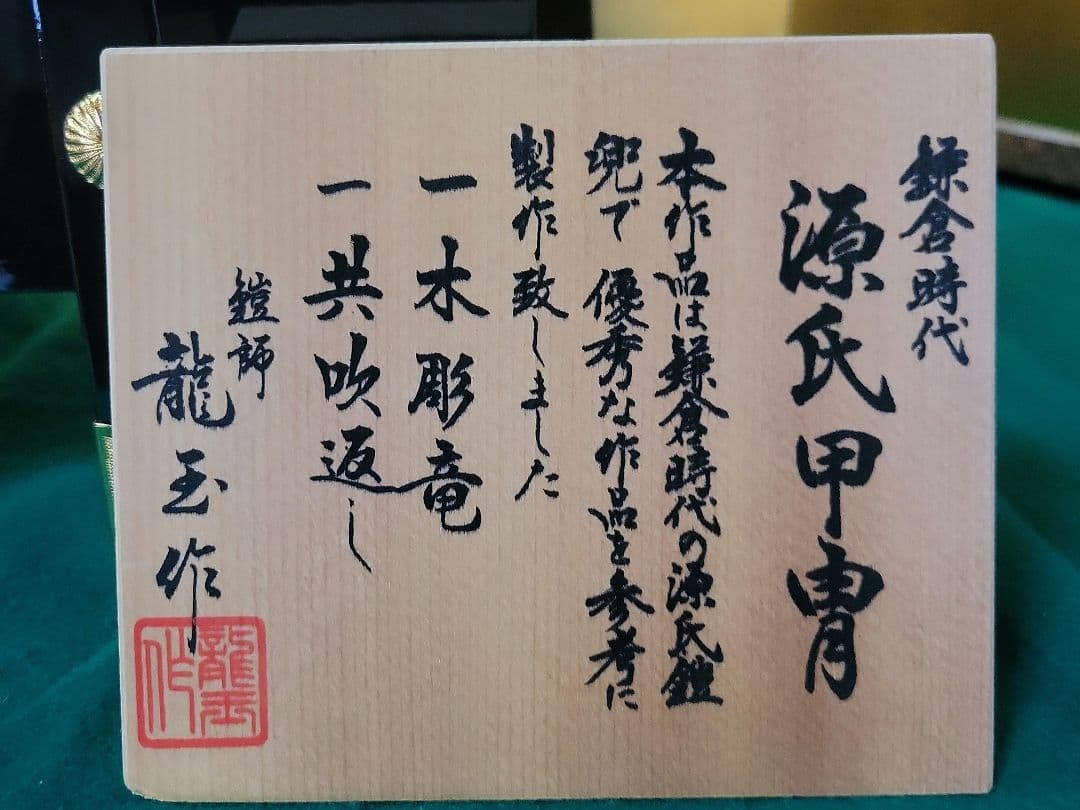 鎌倉時代
源氏甲冑
本作品は鎌倉時代の源氏鎧
兜で優秀な作品を参考に
製作致しました
一木彫竜
一共吹返し
鎧師
龍玉作
龍玉作